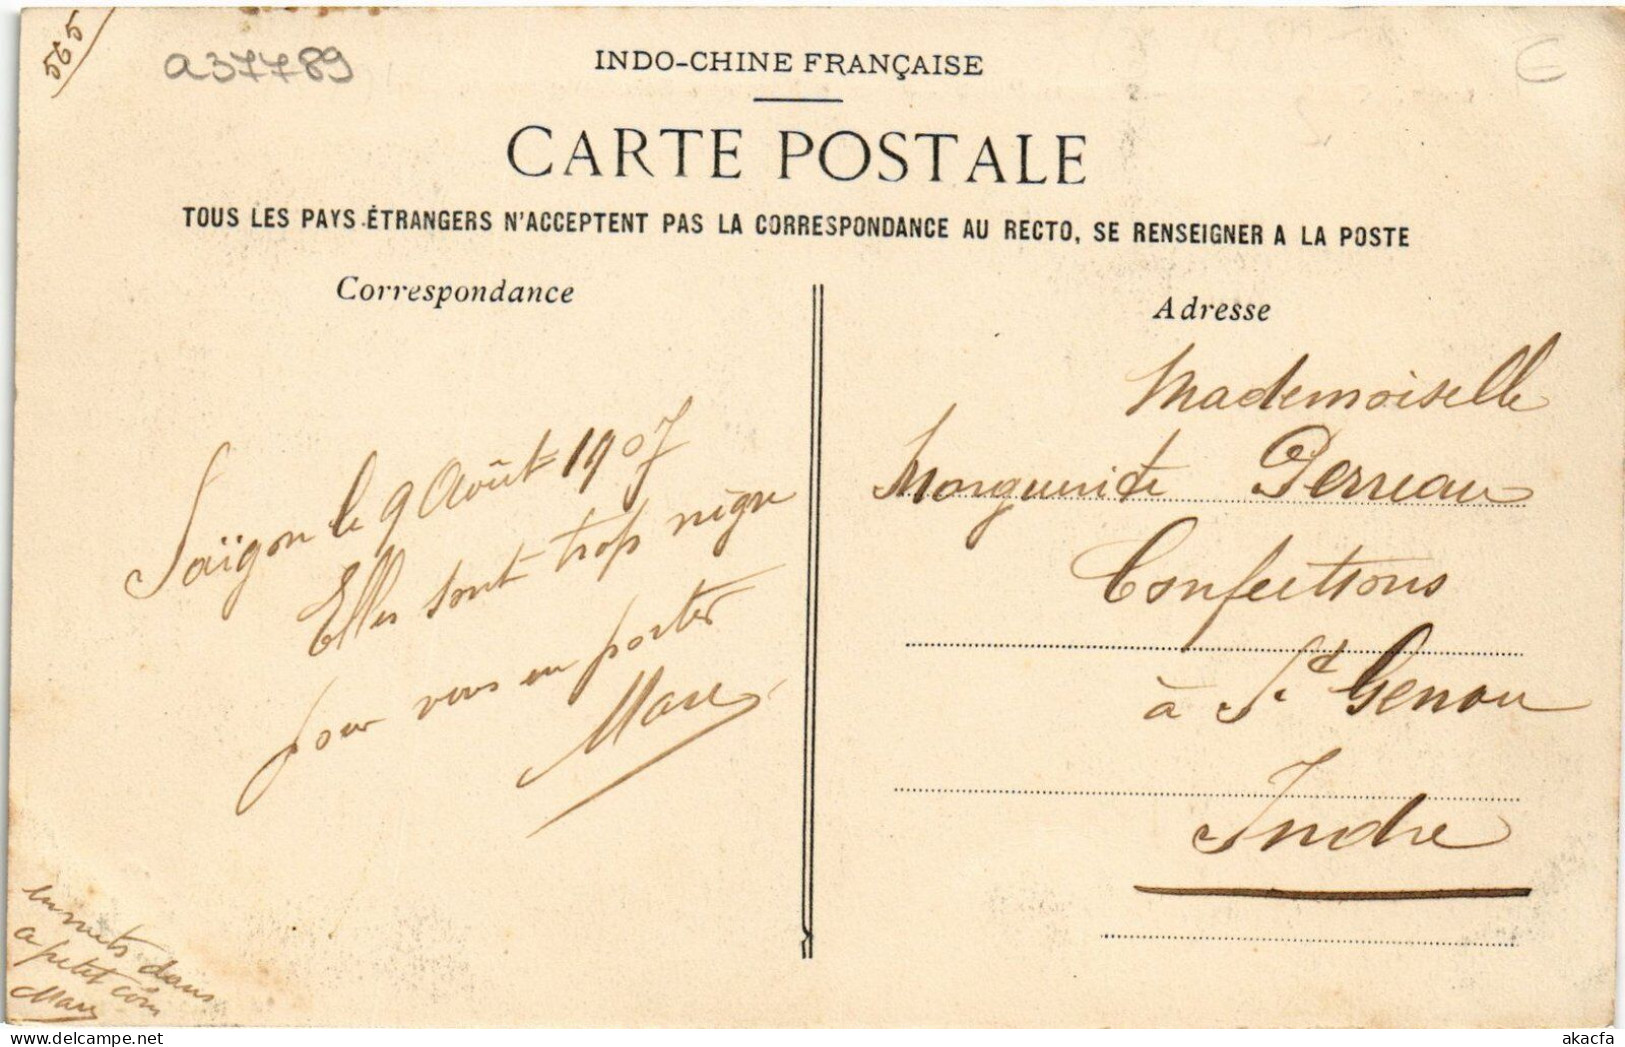 565
a37789
INDO-CHINE FRANÇAISE
CARTE POSTALE
TOUS LES PAYS ÉTRANGERS N'ACCEPTENT PAS LA CORRESPONDANCE AU RECTO, SE RENSEIGNER A LA POSTE
Correspondance
Saïgon le 9 Août 1907
Elles sont trop nègre
pour vous en porter
Marc
en mets dans
a petit coin
Marc
Adresse
Mademoiselle
Marguerite Perreau
Confections
à St Genou
Indre
akacfa.com